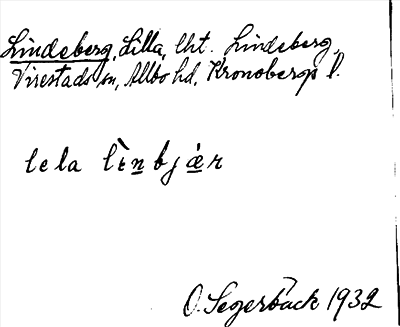 Lindeberg, Lilla, tht. Lindeberg,
Virestads sn, Allbo hd, Kronobergs l.
lɩla lɩ̀n̲bjæ̲̀r
O. Segerbäck 1932